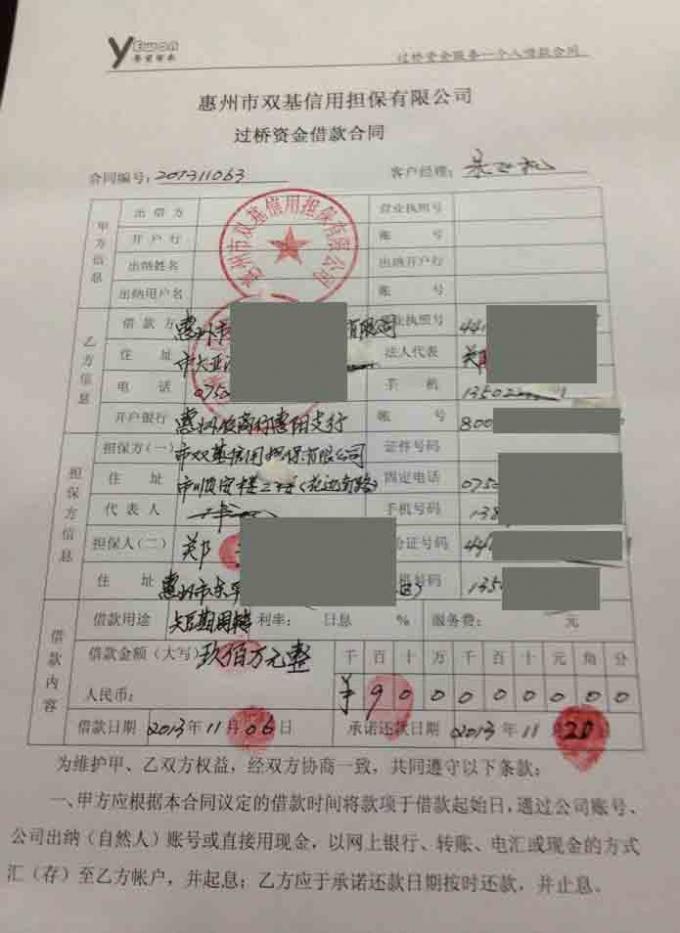 过桥资金服务—个人借款合同
惠州市双基信用担保有限公司
过桥资金借款合同
合同编号: 201311063 客户经理:
惠州市双基信用担保有限公司
甲方信息
出借方 营业执照号
开户行 账号
出纳姓名 出纳开户行
出纳用户名 账号
乙方信息
借款方 惠州市 有限公司 营业执照号 44
住址 市大亚 法人代表 郑
电话 075 手机 13502
开户银行 惠州农商行惠阳支行 账号 800
担保方信息
担保方(一) 市双基信用担保有限公司 证件号码
住址 固定电话 075
代表人 手机号码 138
担保人(二) 郑 份证号码 44
住址 惠州市东平 机号码 135
借款内容
借款用途 短期周转 利率: 日息 % 服务费: 元
借款金额(大写) 玖佰万元整 千 百 十 万 千 百 十 元 角 分
人民币: ¥ 9 0 0 0 0 0 0 0 0
借款日期 2013年11月06日 承诺还款日期 2013年11 20
为维护甲、乙双方权益，经双方协商一致，共同遵守以下条款：
一、甲方应根据本合同议定的借款时间将款项于借款起始日，通过公司账号、
公司出纳（自然人）账号或直接用现金，以网上银行、转账、电汇或现金的方式
汇（存）至乙方帐户，并起息；乙方应于承诺还款日期按时还款，并止息。